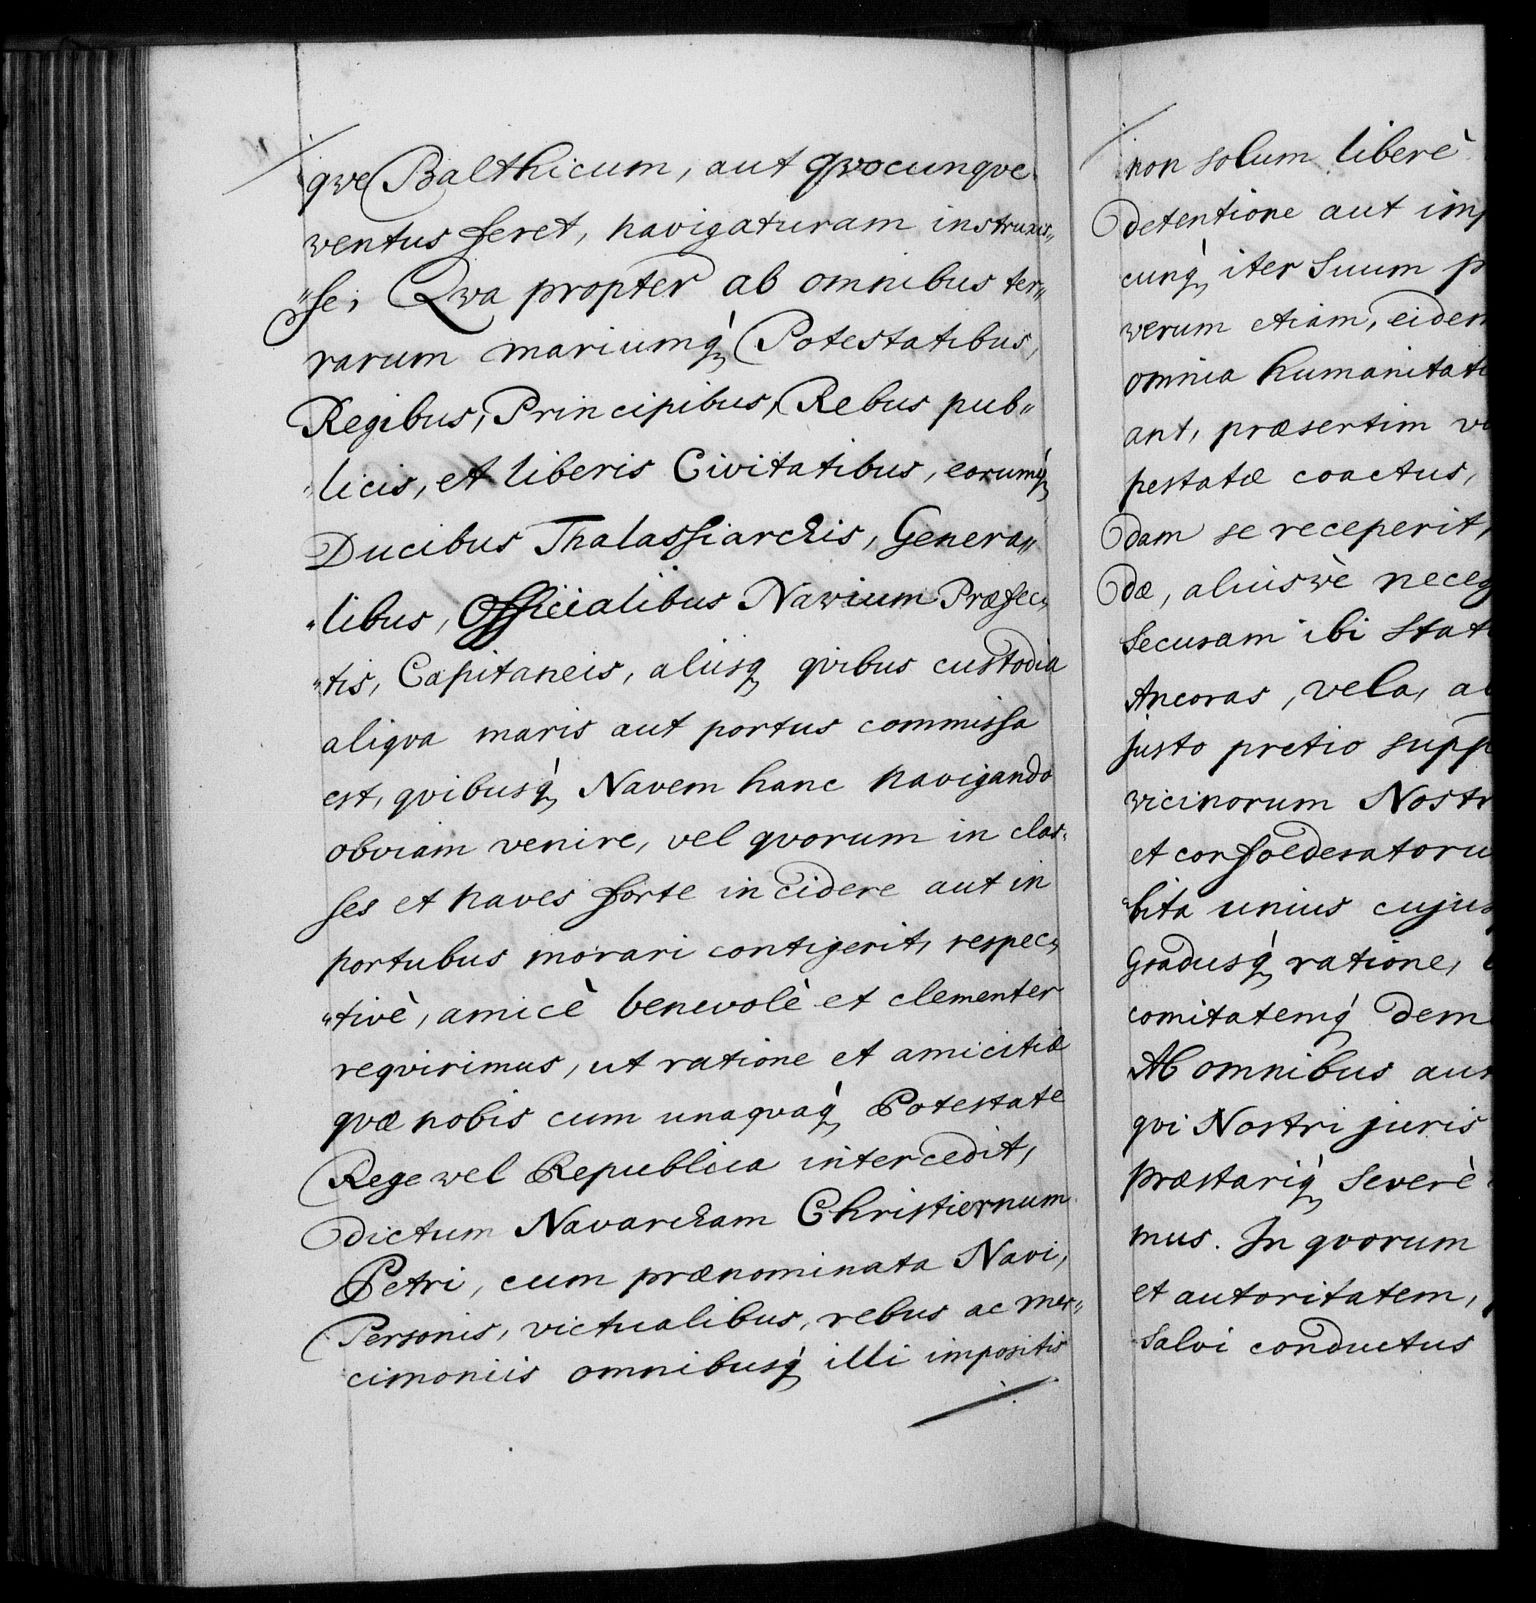 qve Balthicum, aut qvocunqve
ventus feret, navigaturam instruxis„
„se; Qva propter ab omnibus ter„
rarum mariumq́; Potestatibus,
Regibus, Principibus, Rebus pub„
„licis, et liberis Civitatibus, eorumq́;
Ducibus Thalassiarchis, Genera„
„libus, Officialibus Navium Præfec„
„tis, Capitaneis, aliisq; qvibus custodia
aliqva maris aut portus commissa
est, qvibusq́; Navem hanc navigando
obviam venire, vel qvorum in clas„
ses et naves forte incidere aut in
portubus morari contigerit, respec„
„tivè, amicè benevolè et clementer
reqvirimus, ut ratione et amicitiæ
qvæ nobis cum unaqvaq́; Potestate
Rege vel Republica intercedit,
dictum Navarcham Christiernum
Petri, cum prænominata Navi,
Personis, victualibus, rebus ac mer„
cimoniis omnibusq́; illi impositis
non solum liberè
detentione aut imp
cunq́; iter suum p
verum etiam, eidem
omnia humanitati
ant, præsertim
pestate coactus,
dam se receperit,
dæ, aliusvè neces
securam ibi stat
Ancoras, vela, a
justo pretio supp
vicinorum Nostr
et confoederatoru
„bita unius cujus
Gradusq́; ratione,
comitatemq́; dem
Ab omnibus aut
qvi Nostri juris
præstariq́; severè
mus. In qvorum
et autoritatem,
salvi conductus